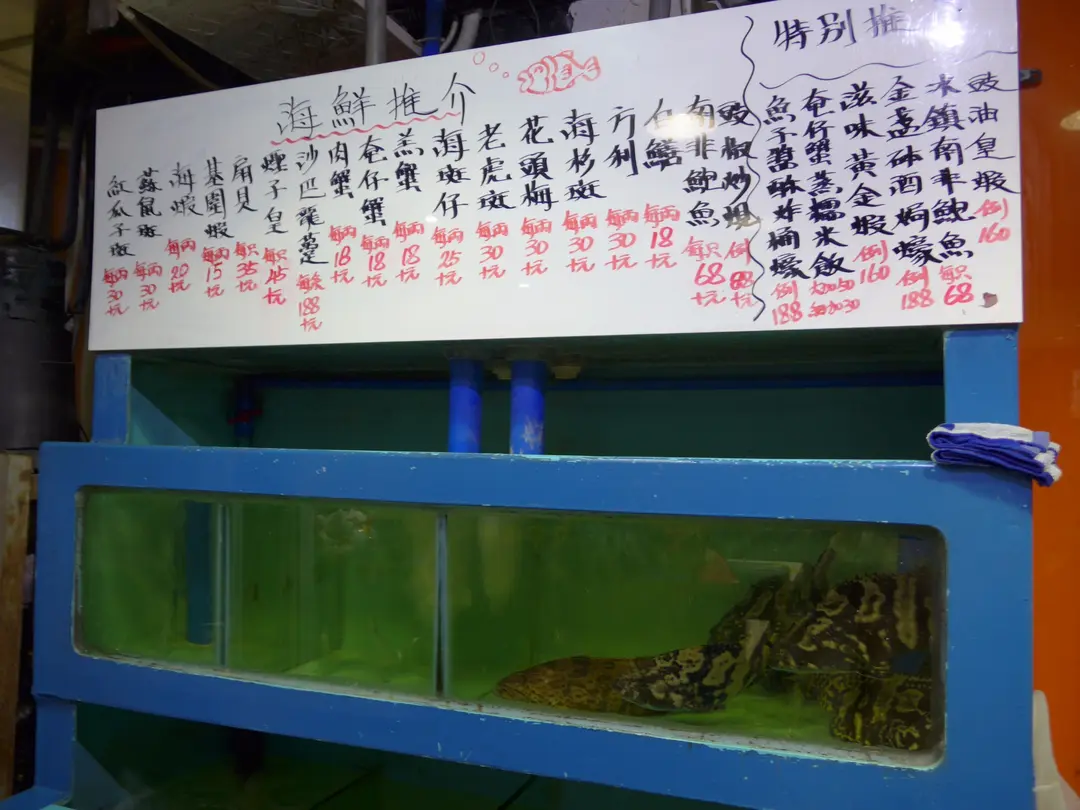 海鮮推介
紅瓜子斑 每両30元
蘇鼠斑 每両30元
海蝦 每両20元
基圍蝦 每両15元
扇貝 每只35元
蟶子皇 每只45元
沙巴龍躉 188元
肉蟹 每両18元
奄仔蟹 每両18元
羔蟹 每両18元
海斑仔 每両25元
老虎斑 每両30元
花頭梅 每両30元
海杉斑 每両30元
方利 每両30元
白鱔 每両18元
南非鮑魚 每只68元
豉椒炒蜆 例88元
特別推
魚子醬酥炸桶蠔 例188
奄仔蟹蒸糯米飯 大加50 細加30
滋味黃金蝦 例160
金盞砵酒焗蠔 例188
冰鎮南非鮑魚 每只68
豉油皇蝦 例160